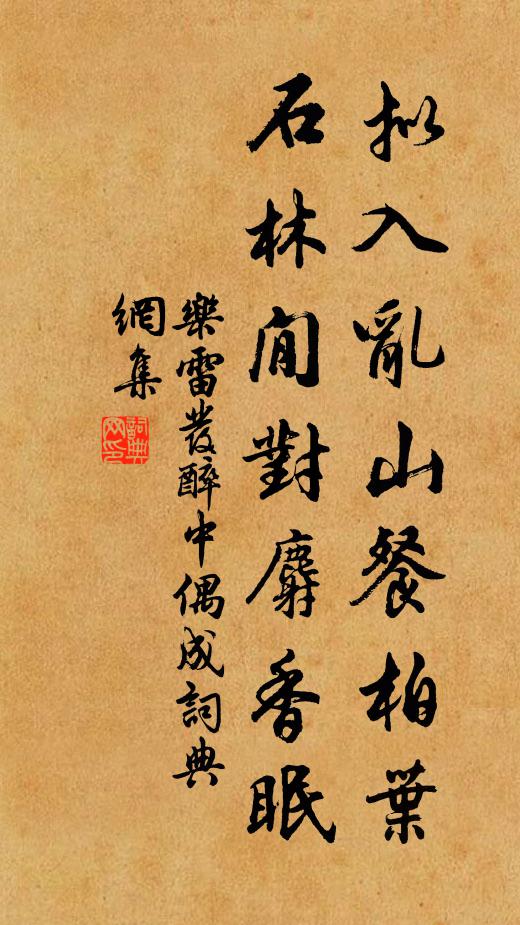 拟入亂山餐柏葉
石林閒對麝香眠
樂雷發醉中偶成詞典
網集
詞典網印